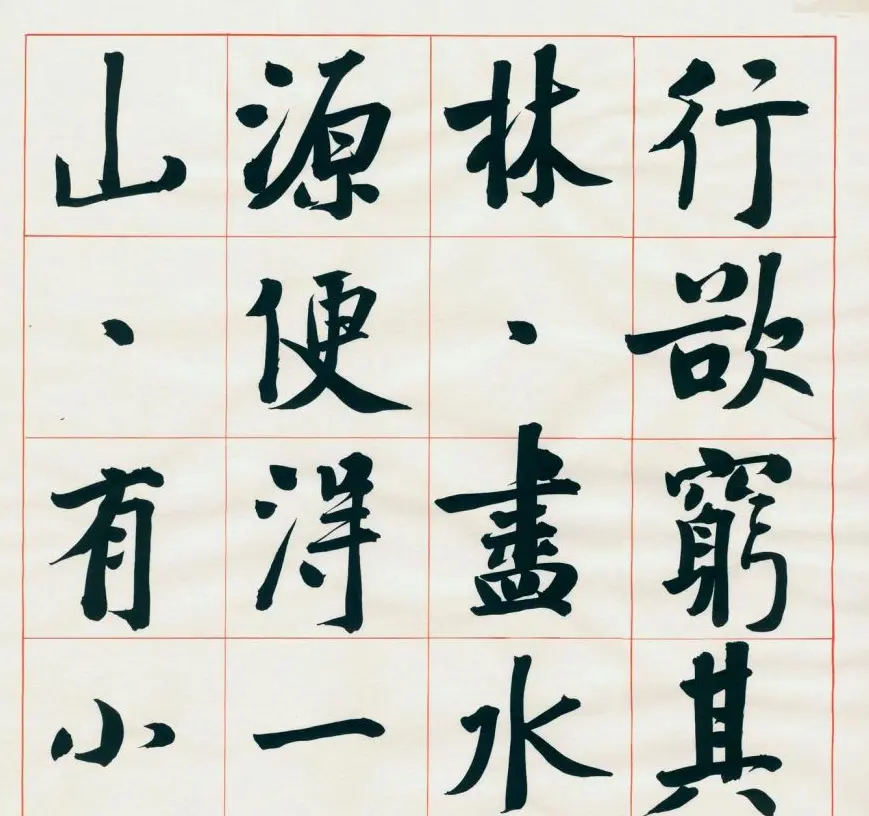 行欲窮其
林·盡水
源便得一
山·有小